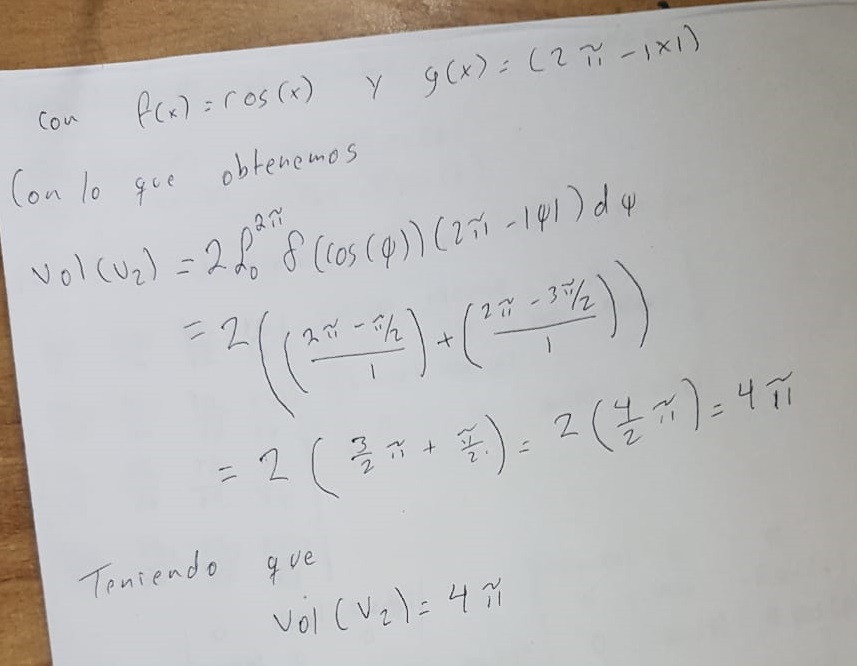 Con f(x) = cos(x) y g(x) = (2π - |x|)
Con lo que obtenemos
Vol(V₂) = 2∫₀^2π δ(cos(φ))(2π - |φ|) dφ
= 2(((2π - π/2)/1) + ((2π - 3π/2)/1))
= 2(3/2 π + π/2.) = 2(4/2 π) = 4π
Teniendo que
Vol(V₂) = 4π